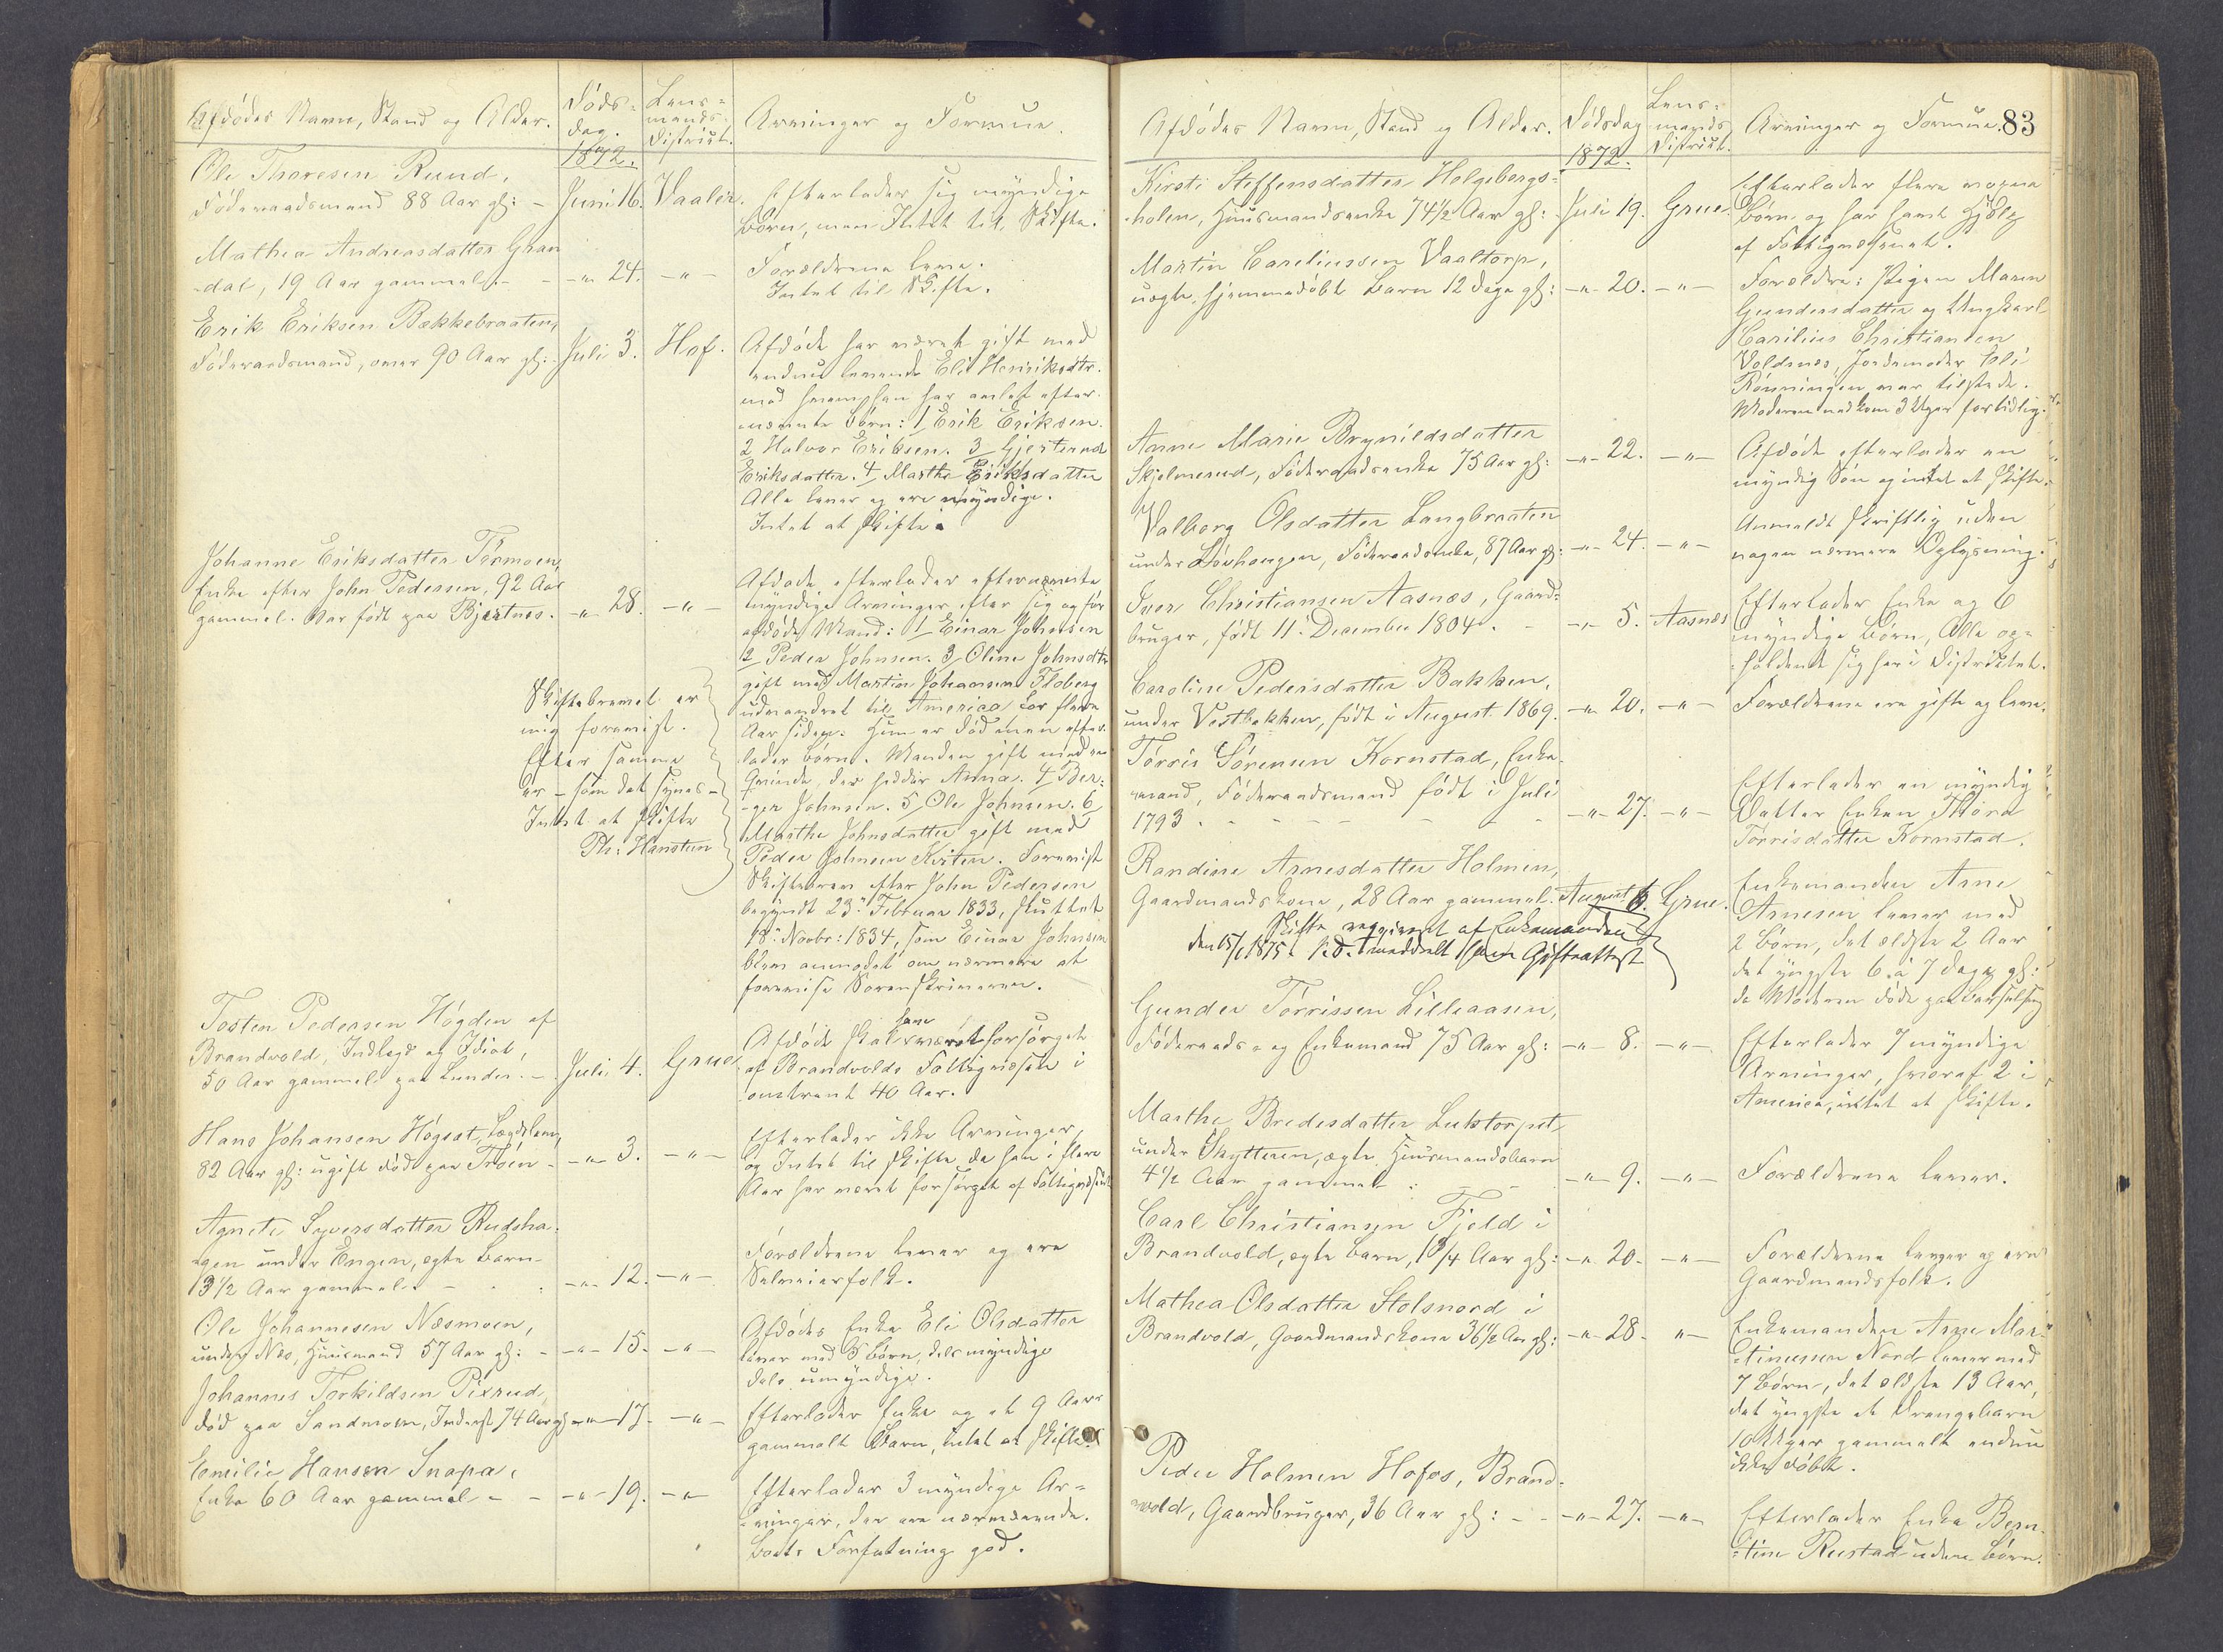 Afdødes Navn, Stand og Alder.
Døds-
dag.
1872.
Lens-
mands-
Distrikt.
Arvinger og Formue.
Ole Thoresen Rund,
Føderaadsmand 88 Aar gl: - Juni 16. Vaaler.
Efterlader sig myndige
Børn, men Intet til Skifte.
Mathea Andreasdatter Gran
-dal, 19 Aar gammel. - -„- 24. -„-
Forældrene leve.
Intet til Skifte.
Erik Eriksen Bækkebraaten,
Føderaadsmand, over 90 Aar gl: Juli 3. Hof.
Afdøde har været gift med
endnu levende Eli Henriksdtr.
med hvem han har avlet efter-
nævnte Børn: 1/ Erik Eriksen.
2 Halvor Eriksen. 3/ Gjertrud
Eriksdatter. 4/ Marthe Eriksdatter
Alle lever og ere myndige.
Intet at skifte.
Johanne Eriksdatter Tørmoen,
Enke efter John Pedersen, 92 Aar
gammel. Var født paa Bjertnæs. -„- 28. -„-
Afdøde efterlader efternævnte
myndige Arvinger efter sig og før
afdøde Mand: 1/ Einar Johnsen
2/ Peder Johnsen. 3/ Oline Johnsdtr
gift med Martin Johansen Floberg
udvandret til America for flere
Aar siden. Hun er død men efter-
lader Børn. Manden gift med en
Qvinde, der hedder Anna. 4/ Ber-
-ger Johnsen. 5/ Ole Johnsen. 6/
Marthe Johnsdatter gift med
Peder Johnsen Kirten. Foreviist
Skiftebrev efter John Pedersen
begyndt 23. Februar 1833, sluttet
18. Novbr: 1834, som Einar Johnsen
blev anmodet om nærmere at
forevise Sorenskriveren.
Skiftebrevet er
mig foreviist.
Efter samme
er - som det synes -
Intet at skifte
Th: Hansteen
Tosten Pedersen Høgden af
Brandvold, Indlagt og Idiot,
50 Aar gammel paa Lunder. - Juli 4. Grue
Afdøde skal have været forsørget
af Brandvolds Fattigvæsen i
omtrent 40 Aar.
Hans Johansen Høgset, Lægdslem,
82 Aar gl: ugift død paa Trøen - -„- 3. -„-
Efterlader ikke Arvinger,
og Intet til Skifte da han i flere
Aar har været forsørget af Fattigvæsenet
Agnete Syversdatter Rudsha-
-gen under Engen, ægte Barn
13½ Aar gammel. - -„- 12. -„-
Forældrene lever og ere
Selveierfolk.
Ole Johannesen Næsmoen,
under Næs, Huusmand 57 Aar gl: - -„- 15. -„-
Afdødes Enke Eli Olsdatter
lever med 5 Børn, dels myndige
dels umyndige.
Johannes Torkildsen Pixrud
død paa Sandmoen, Inderst 74 Aar gl: -„- 17. -„-
Efterlader Enke og et 9 Aars
gammelt Barn, intet at skifte.
Emilie Hansen Snapa,
Enke 60 Aar gammel - - -„- 19. -„-
Efterlader 3 myndige Ar-
-vinger, der ere nærværende.
Boets Forfatning god.
Afdødes Navn, Stand og Alder.
Dødsdag
1872.
Lens-
mands
Distrikt.
Arvinger og Formue.
83
Kirsti Steffensdatter Helgebergs-
-holen, Huusmandsenke 74½ Aar gl: Juli 19. Grue.
Efterlader flere voxne
Børn og har havt Hjælp
af Fattigvæsenet.
Martin Careliussen Vaaltorp,
uægte, hjemmedøbt Barn 12 Dage gl: -„- 20. -„-
Forældre: Pigen Maren
Gundersdatter og Ungkarl
Carilius Christiansen
Voldsnes, Jordemoder Eli
Rønningen var tilstede.
Moderen nedkom 3 Uger fortidlig.
Anne Marie Brynildsdatter
Skjelmerud, Føderaadsenke 75 Aar gl: -„- 22. -„-
Afdøde efterlader en
myndig Søn og intet at skifte.
Valborg Olsdatter Langbraaten
under Løvhaugen, Føderaadsenke, 87 Aar gl: -„- 24. -„-
Anmeldt skriftlig uden
nogen nærmere Oplysning.
Iver Christiansen Aasnæs, Gaard-
bruger, født 11. December 1804. - -„- 5. Aasnæs
Efterlader Enke og 6
myndige Børn, Alle op-
-holdende sig her i Distriktet.
Caroline Pedersdatter Bakken,
under Vestbakken, født i August 1869. -„- 20. -„-
Forældrene ere gifte og leve.
Tørris Sørensen Kornstad, Enke-
mand, Føderaadsmand født i Juli
1793. - - - - - - -„- 27. -„-
Efterlader en myndig
Datter Enken Thora
Tørrisdatter Kornstad.
Randine Arnesdatter Holmen,
Gaardmandskone, 28 Aar gammel. August 6. Grue.
Enkemanden Arne
Arnesen lever med
2 Børn, det ældste 2 Aar
det yngste 6 à 7 Dage gl:
da Moderen døde paa Barselseng
Skifte reqvireret af Enkemanden
den 15/1 1875. s.D. meddelt ham Gifteattest
Gunder Tørrissen Lilleaasen,
Føderaads- og Enkemand 75 Aar gl: -„- 8. -„-
Efterlader 7 myndige
Arvinger, hvoraf 2 i
America, intet at skifte.
Marthe Bredesdatter Lukstorpet
under Skytteren, ægte Huusmandsbarn
4½ Aar gammel - - -„- 9. -„-
Forældrene lever.
Carl Christiansen Fjeld i
Brandvold, ægte Barn, 1¾ Aar gl: -„- 20. -„-
Forældrene lever og ere
Gaardmandsfolk.
Mathea Olsdatter Stolsnord i
Brandvold, Gaardmandskone 36½ Aar gl: -„- 28. „-
Enkemanden Arne Mar-
-tinussen Nord lever med
7 Børn, det ældste 13 Aar,
det yngste et Drengebarn
10 Uger gammelt endnu
ikke døbt.
Peder Holmen Hofos, Brand-
-vold, Gaardbruger, 36 Aar gl: - - -„- 27. -„-
Efterlader Enke Bern-
-tine Rustad uden Børn.